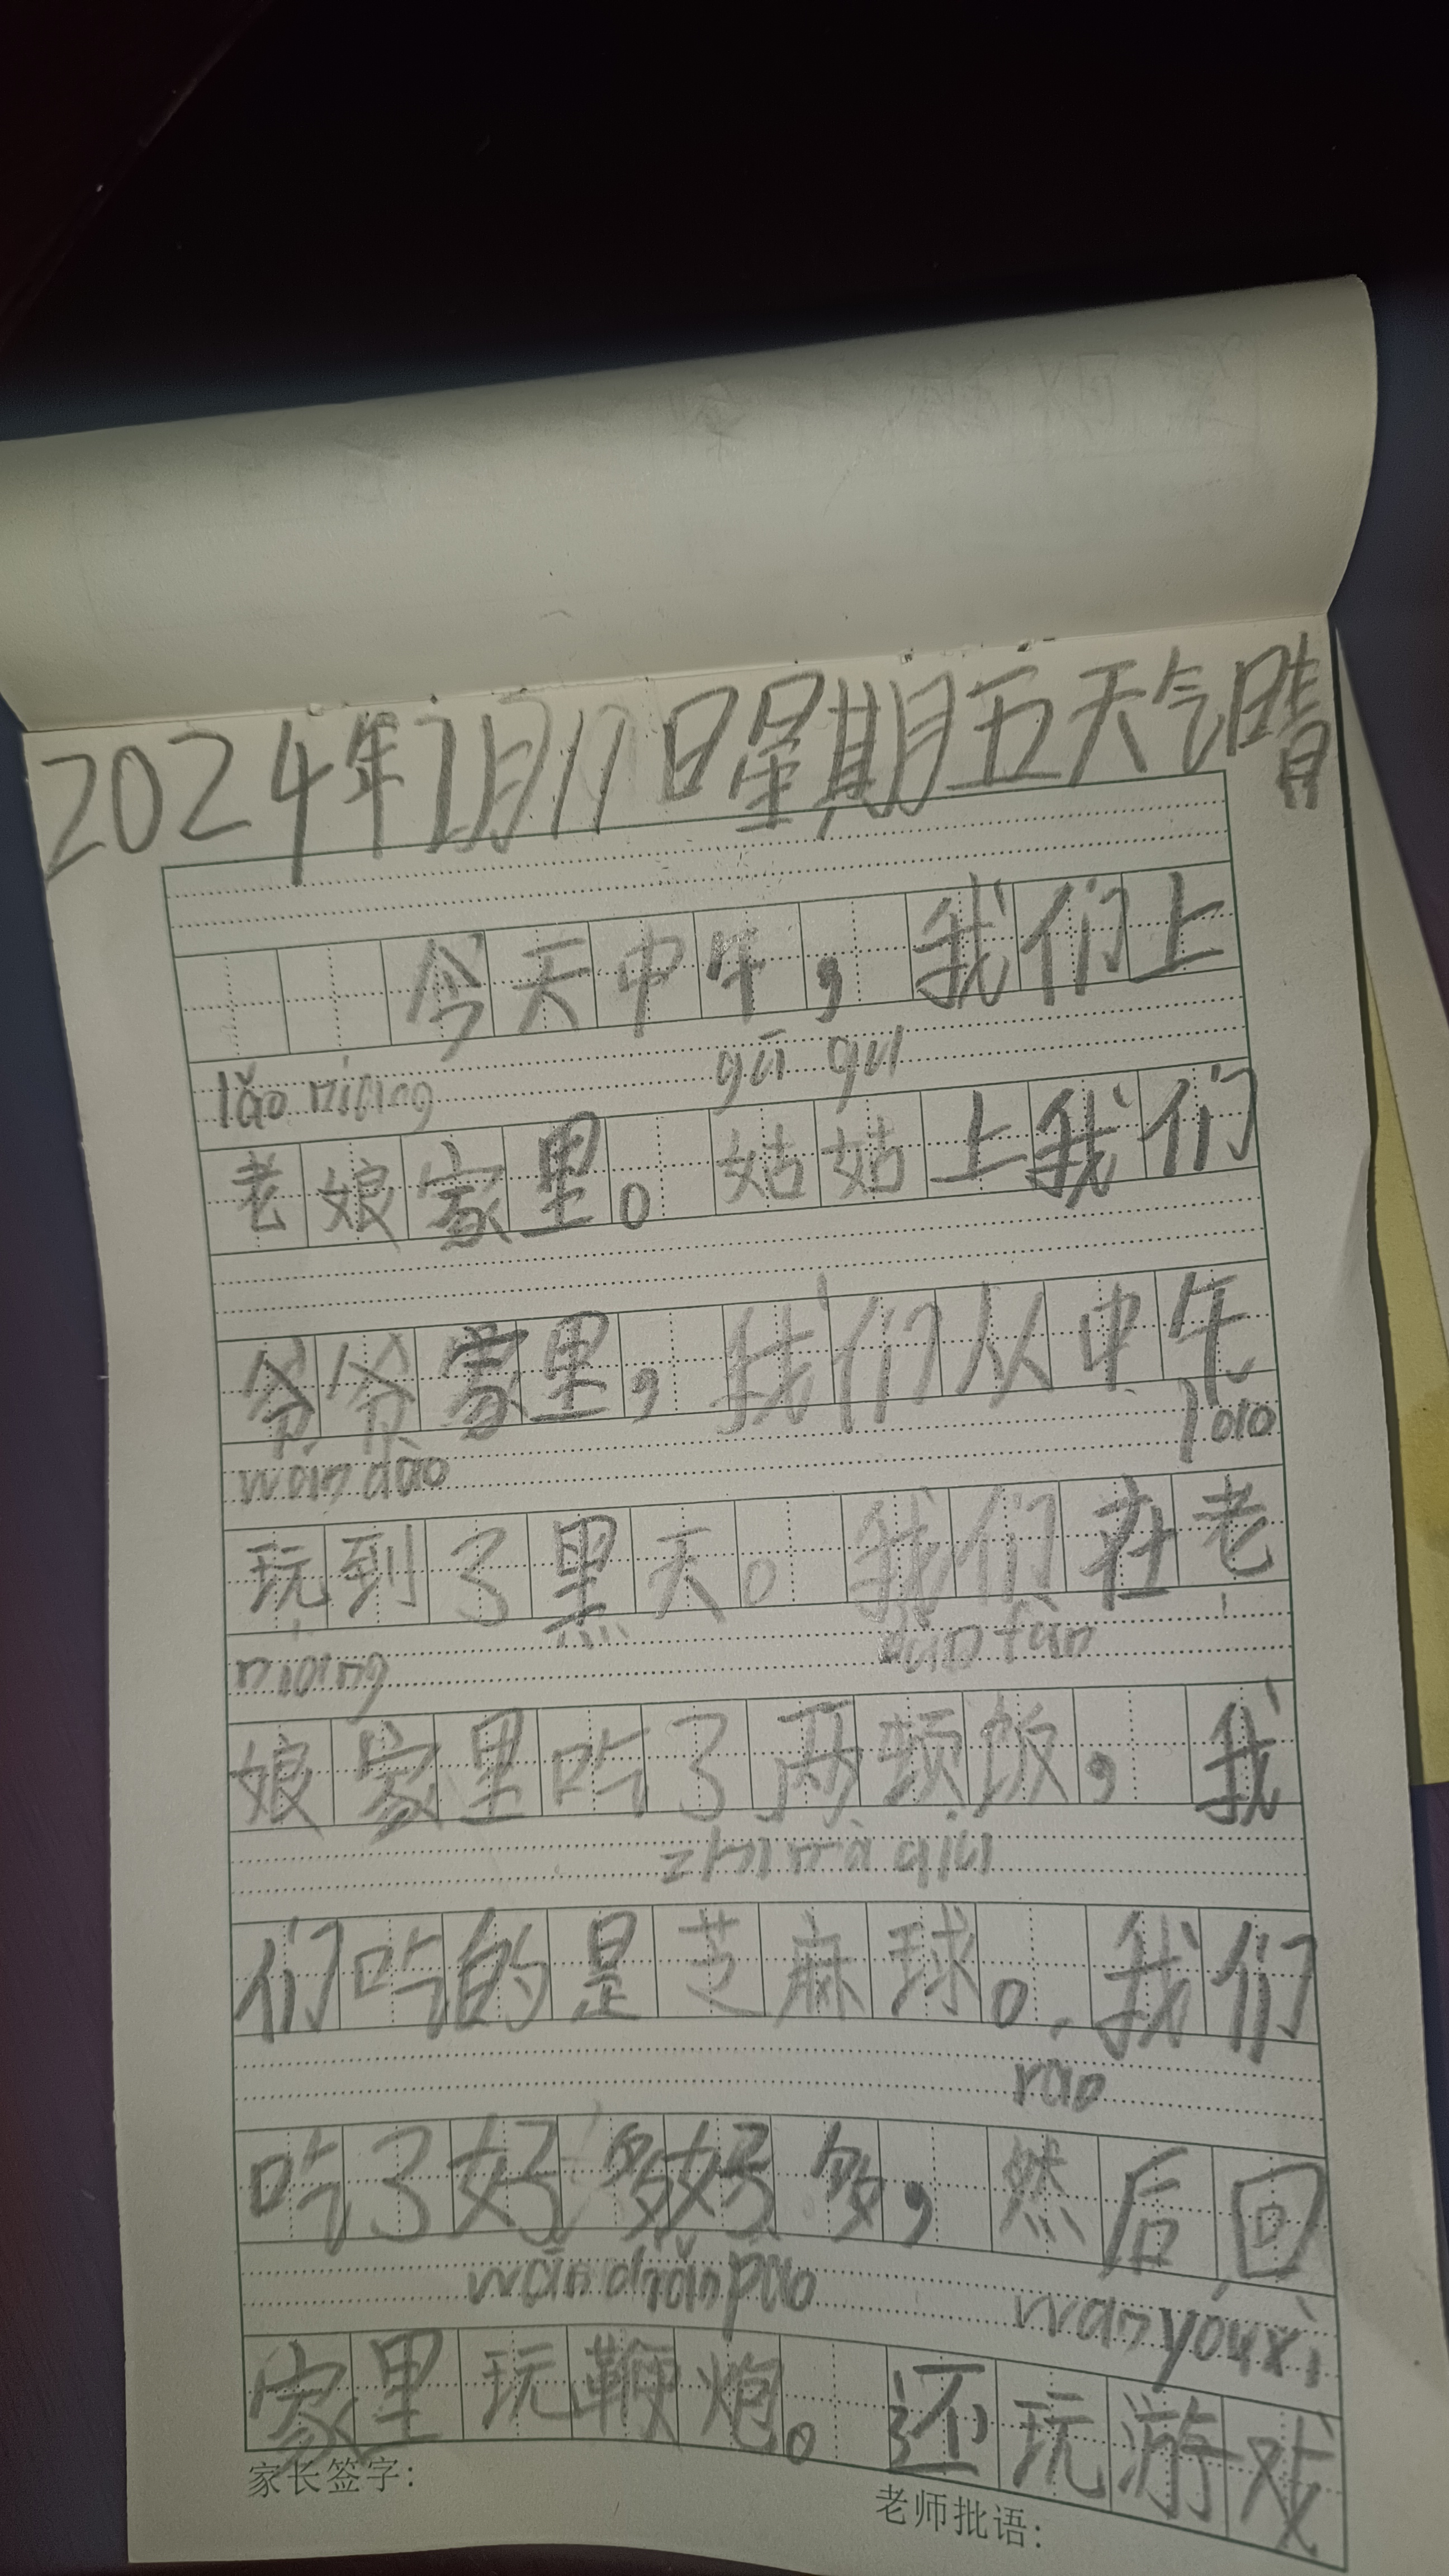 2024年2月11日星期五天气晴
今天中午，我们上
lǎo niang gū gu
老娘家里。姑姑上我们
爷爷家里，我们从中午
wan dao lao
玩到了黑天。我们在老
niang dun fan
娘家里吃了两顿饭，我
zhi ma qiu
们吃的是芝麻球。我们
rao
吃了好多好多，然后回
wán biān pào wan you xi
家里玩鞭炮。还玩游戏
家长签字：
老师批语：